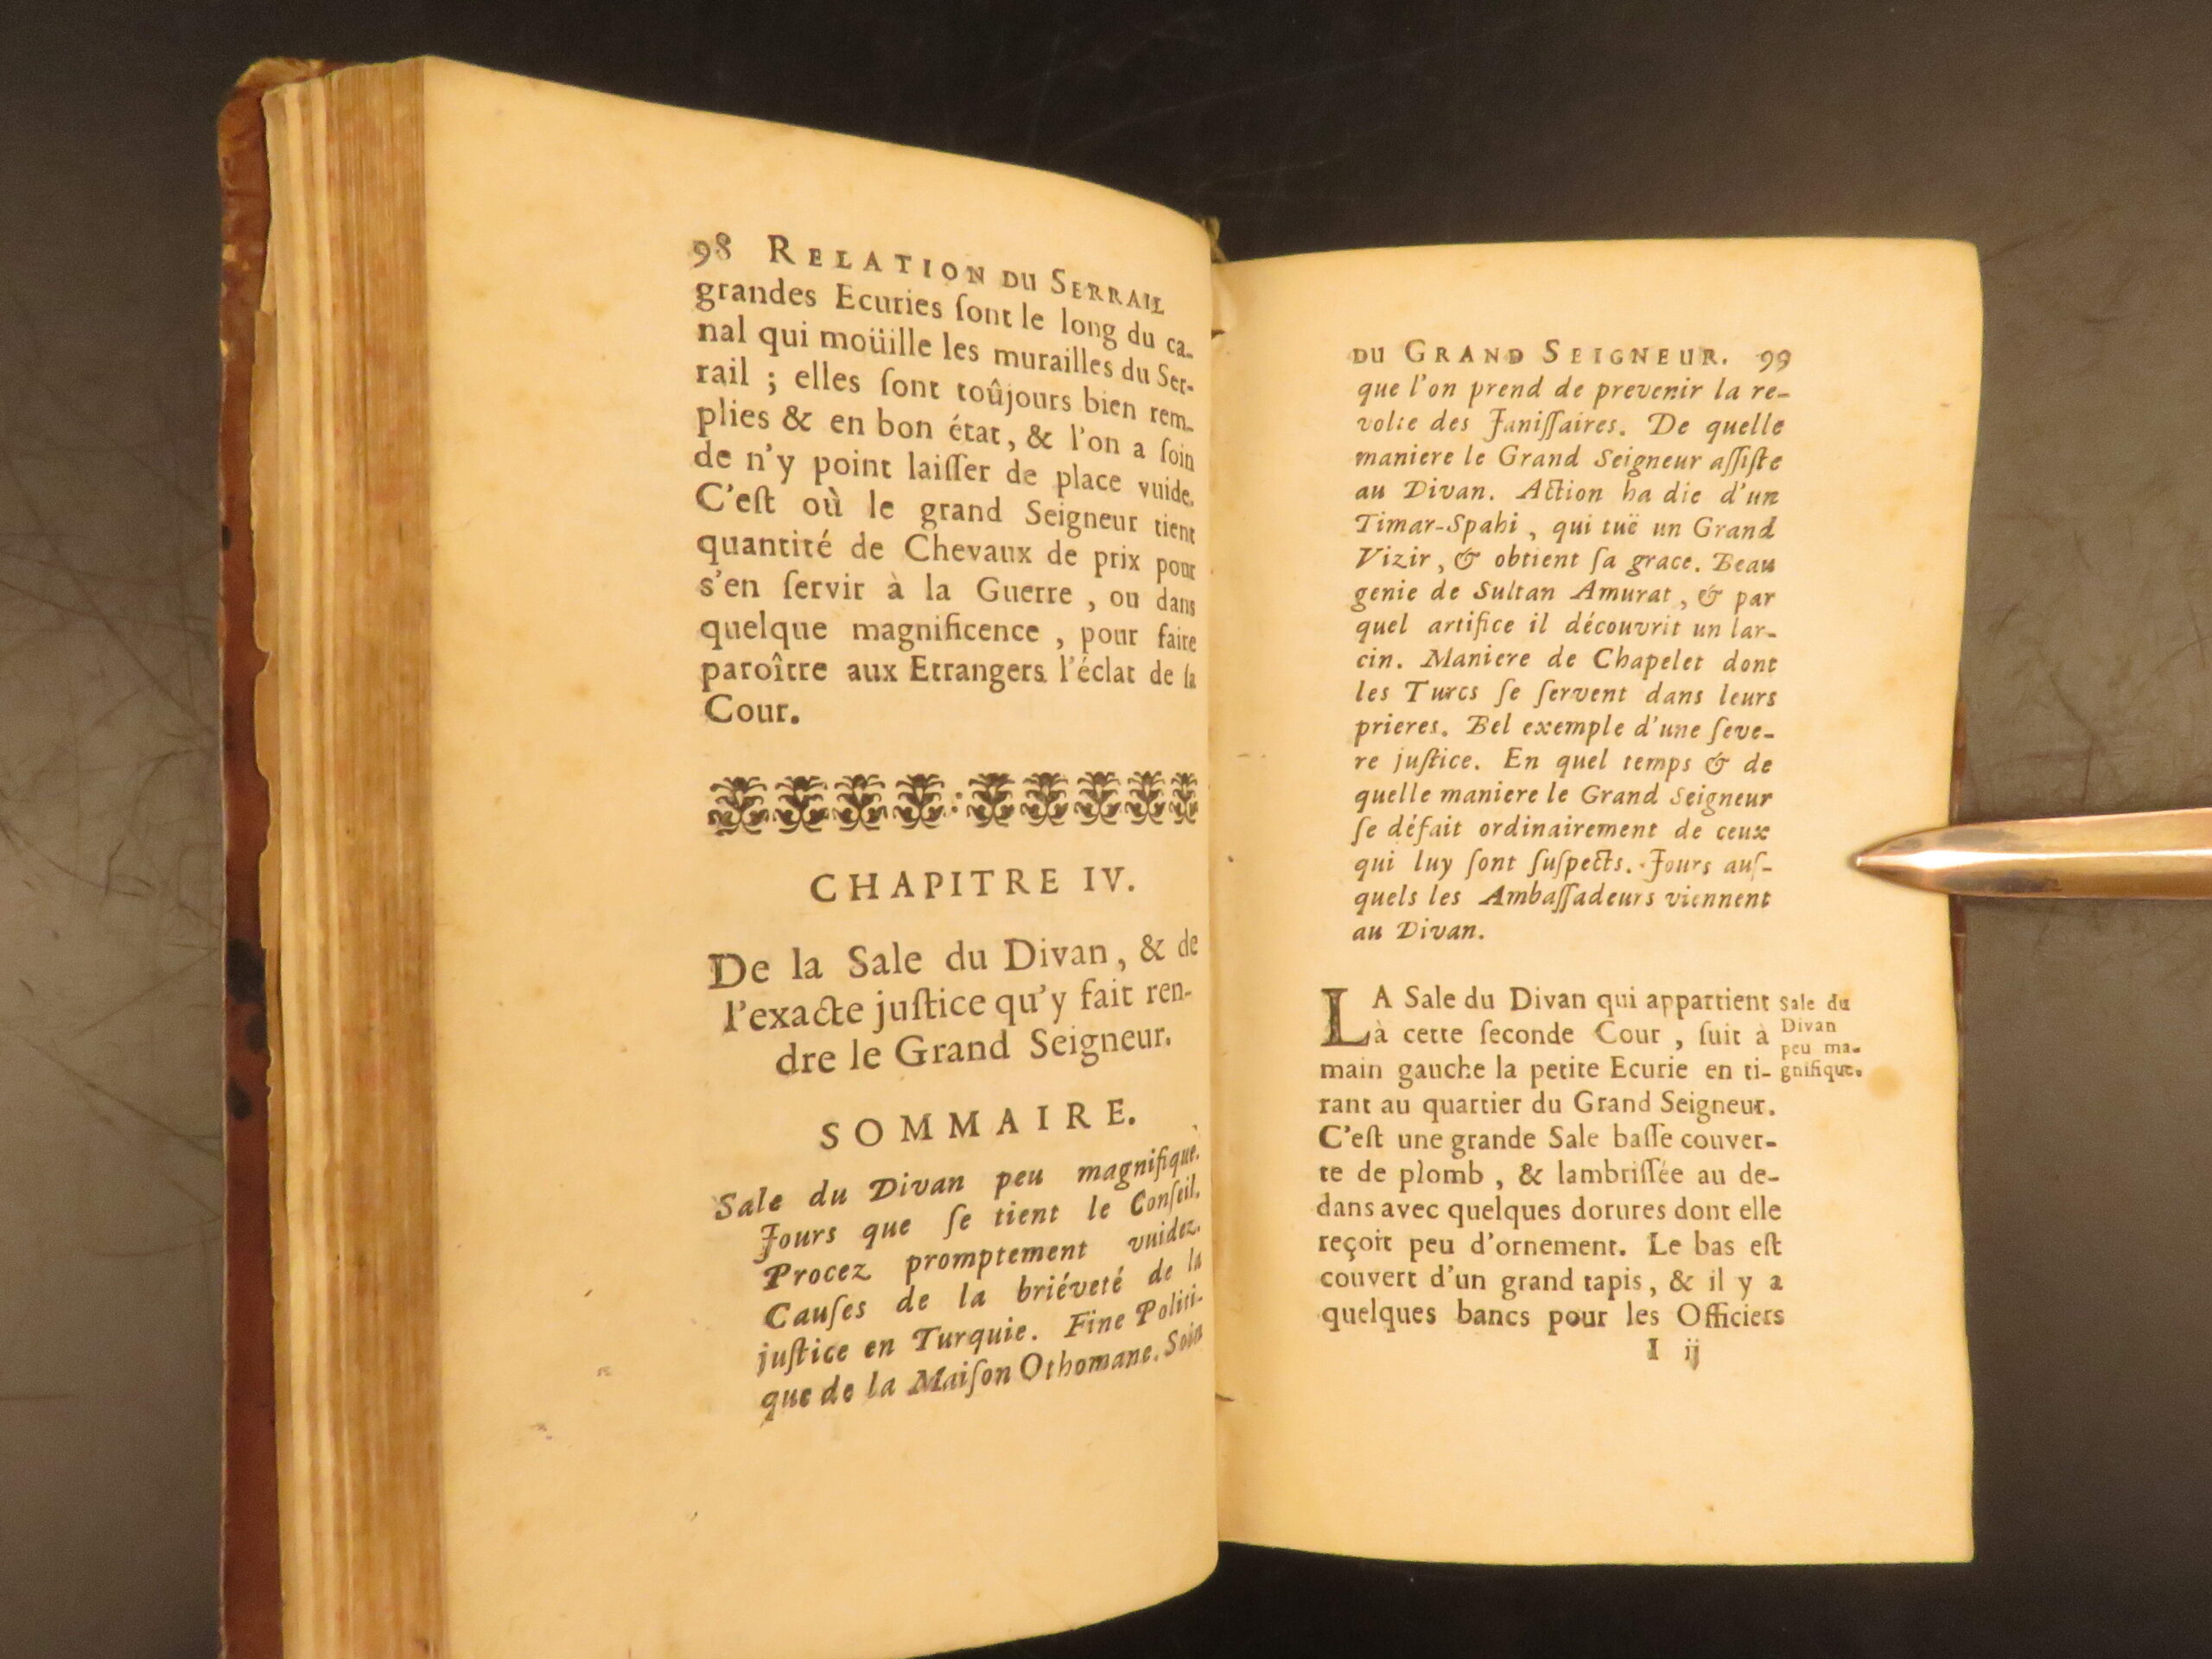 98 RELATION DU SERRAIL
grandes Ecuries ſont le long du ca-
nal qui moüille les murailles du Ser-
rail ; elles ſont toûjours bien rem-
plies & en bon état, & l'on a ſoin
de n'y point laiſſer de place vuide.
C'eſt où le grand Seigneur tient
quantité de Chevaux de prix pour
s'en ſervir à la Guerre , ou dans
quelque magnificence , pour faire
paroître aux Etrangers l'éclat de ſa
Cour.
CHAPITRE IV.
De la Sale du Divan, & de
l'exacte juſtice qu'y fait ren-
dre le Grand Seigneur.
SOMMAIRE.
Sale du Divan peu magnifique.
Jours que ſe tient le Conſeil.
Procez promptement vuidez.
Cauſes de la briéveté de la
juſtice en Turquie. Fine Politi-
que de la Maiſon Othomane. Soin
DU GRAND SEIGNEUR. 99
que l'on prend de prevenir la re-
volte des Janiſſaires. De quelle
maniere le Grand Seigneur aſſiſte
au Divan. Action ha die d'un
Timar-Spahi , qui tuë un Grand
Vizir, & obtient ſa grace. Beau
genie de Sultan Amurat, & par
quel artifice il découvrit un lar-
cin. Maniere de Chapelet dont
les Turcs ſe ſervent dans leurs
prieres. Bel exemple d'une ſeve-
re juſtice. En quel temps & de
quelle maniere le Grand Seigneur
ſe défait ordinairement de ceux
qui luy ſont ſuſpects. Jours auſ-
quels les Ambaſſadeurs viennent
au Divan.
LA Sale du Divan qui appartient
à cette ſeconde Cour , ſuit à
main gauche la petite Ecurie en ti-
rant au quartier du Grand Seigneur.
C'eſt une grande Sale baſſe couver-
te de plomb , & lambriſſée au de-
dans avec quelques dorures dont elle
reçoit peu d'ornement. Le bas eſt
couvert d'un grand tapis, & il y a
quelques bancs pour les Officiers
Sale du
Divan
peu ma-
gnifique.
I ij